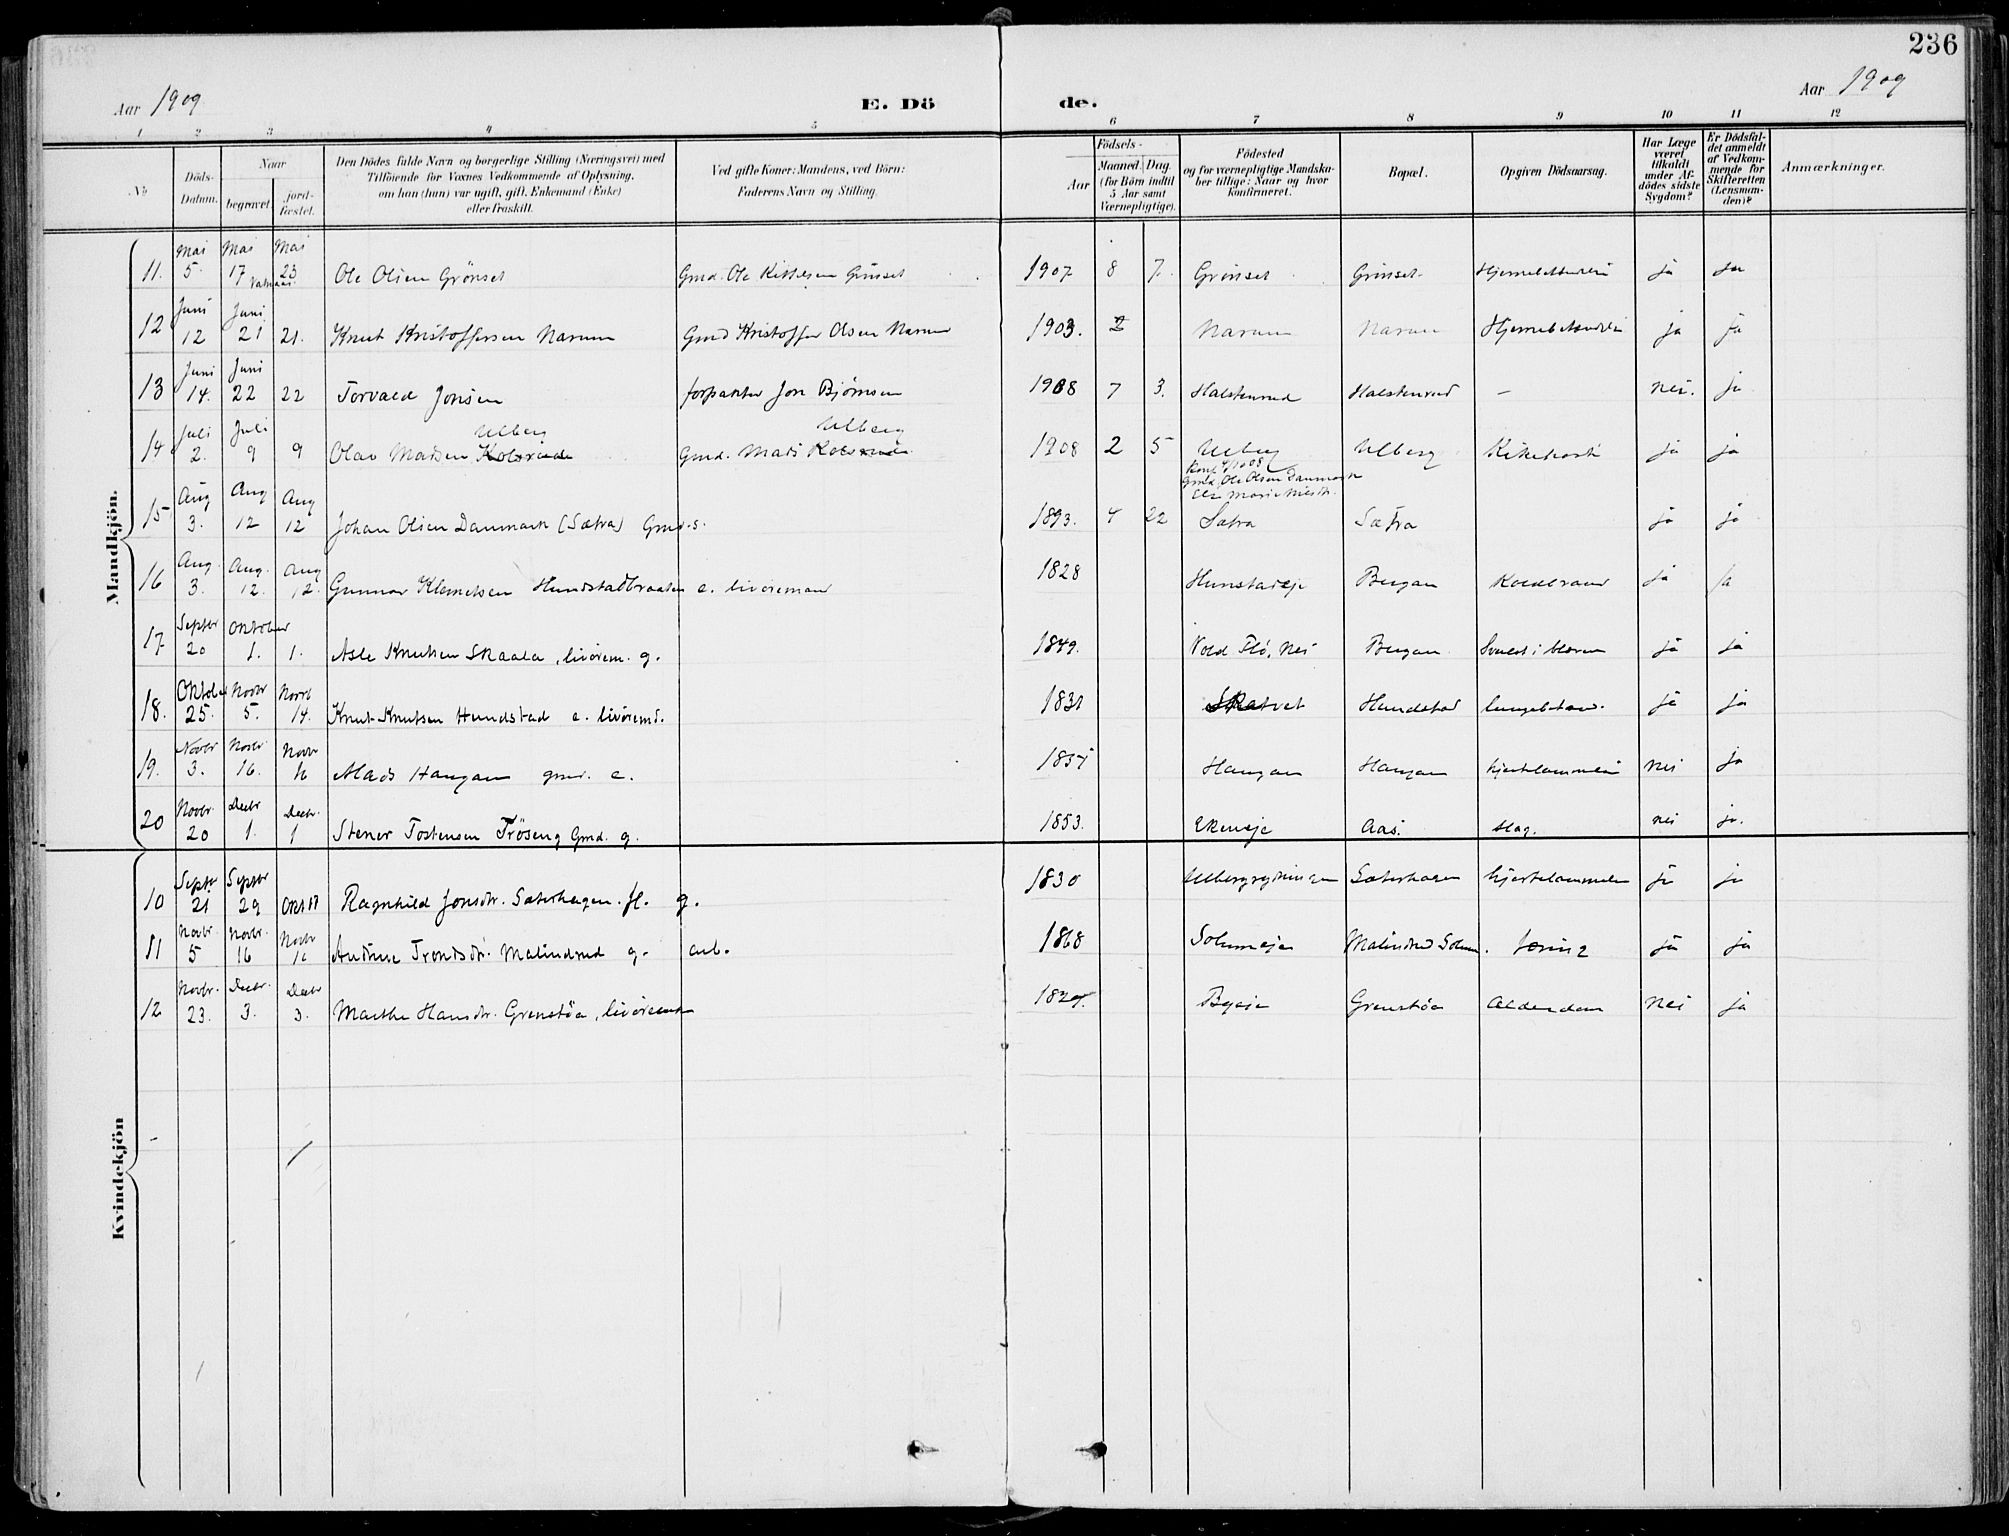 236
Aar 1909
E. Dö de.
Aar 1909
1 2 3 4 5 6 7 8 9 10 11 12
No
Döds-Datum.
Naar
begravet.
jord-fæstet.
Den Dödes fulde Navn og borgerlige Stilling (Næringsvei) med
Tilföiende for Voxnes Vedkommende af Oplysning,
om han (hun) var ugift, gift, Enkemand (Enke)
eller fraskilt.
Ved gifte Koner: Mandens, ved Börn:
Faderens Navn og Stilling.
Födsels-
Aar
Maaned. Dag.
(for Börn indtil
5 Aar samt
Værnepligtige).
Födested
og for værnepligtige Mandska-
ber tillige: Naar og hvor
konfirmeret.
Bopæl.
Opgiven Dödsaarsag.
Har Læge
været
tilkaldt
under Af-
dödes sidste
Sygdom?
Er Dödsfal-
det anmeldt
af Vedkom-
mende for
Skifteretten
(Lensman-
den)?
Anmærkninger.
Mandkjön.
Mai Mai Mai
11. 5. 17 23 Ole Olsen Grönset Gmd. Ole Kittelsen Grönset 1907 8 7. Grönset Grönset Hjernebetændelse ja ja
Juni Juni
12 12 21 21. Knut Kristoffersen Narum Gmd Kristoffer Olsen Narum 1903. 2 Narum Narum Hjernebetændelse ja ja
Juni Juni
13 14. 22 22 Torvald Jonsen forpakter Jon Bjørnsen 1908 7 3. Halstenrud Halstenrud — nei. ja
Juli Juli Ulberg Ulberg
14 2. 9 9 Olav Madsen Kolsrud Gmd. Mads Kolsrud 1908 2 5 Ulberg Ulberg Kikehoste ja ja
Gmd. Ole Olsen Danmark
Aug Aug Aug
15 3. 12 12 Johan Olsen Danmark (Sætra) Gmd. s. 1893. 4 22 Sætra Sætra ja ja
Aug. Aug. Aug
16 3. 12. 12. Gunnar Klemetsen Hundstadbraaten e. livöremand 1828 Hunstadeje Bergan Koldbrand ja ja
Septbr Oktober
17 20 1. 1. Asle Knutsen Skaala, livörem. g. 1849. Vold Flå, Nes Bergan ja ja
Oktober Novbr Novb
18. 25. 5. 14. Knut Knutsen Hundstad e. livöremd. 1831 Skatvet Hundstad lungebetænd. ja ja
Novbr Novbr Novbr
19. 3. 16. 16 Mads Haugan gmd. e. Haugan Haugan hjertelammelse nei ja
Novbr. Decbr Decbr.
20 20 1. 1 Stener Tostensen Tröseng Gmd. g. 1853. Ekeneje Aas. slag. nei ja.
Kvindekjön
Septbr Septbr
10 21 29 Okt 17 Ragnhild Jonsdtr. Sæterhagen. fl. g. 1830 Ulbergrydningen Sæterhagen hjertelammelse ja ja
Novbr. Novbr. Novbr
11 5 16 16 Andrine Trondsdtr. Malindrud g. arb. 1868 Solumeje Malindrud Solum. ja ja
Novbr. Decbr. Decbr
12 23. 3. 3. Marthe Hansdtr. Grenstöa, livörenke Byeje Grenstöa Alderdom nei ja